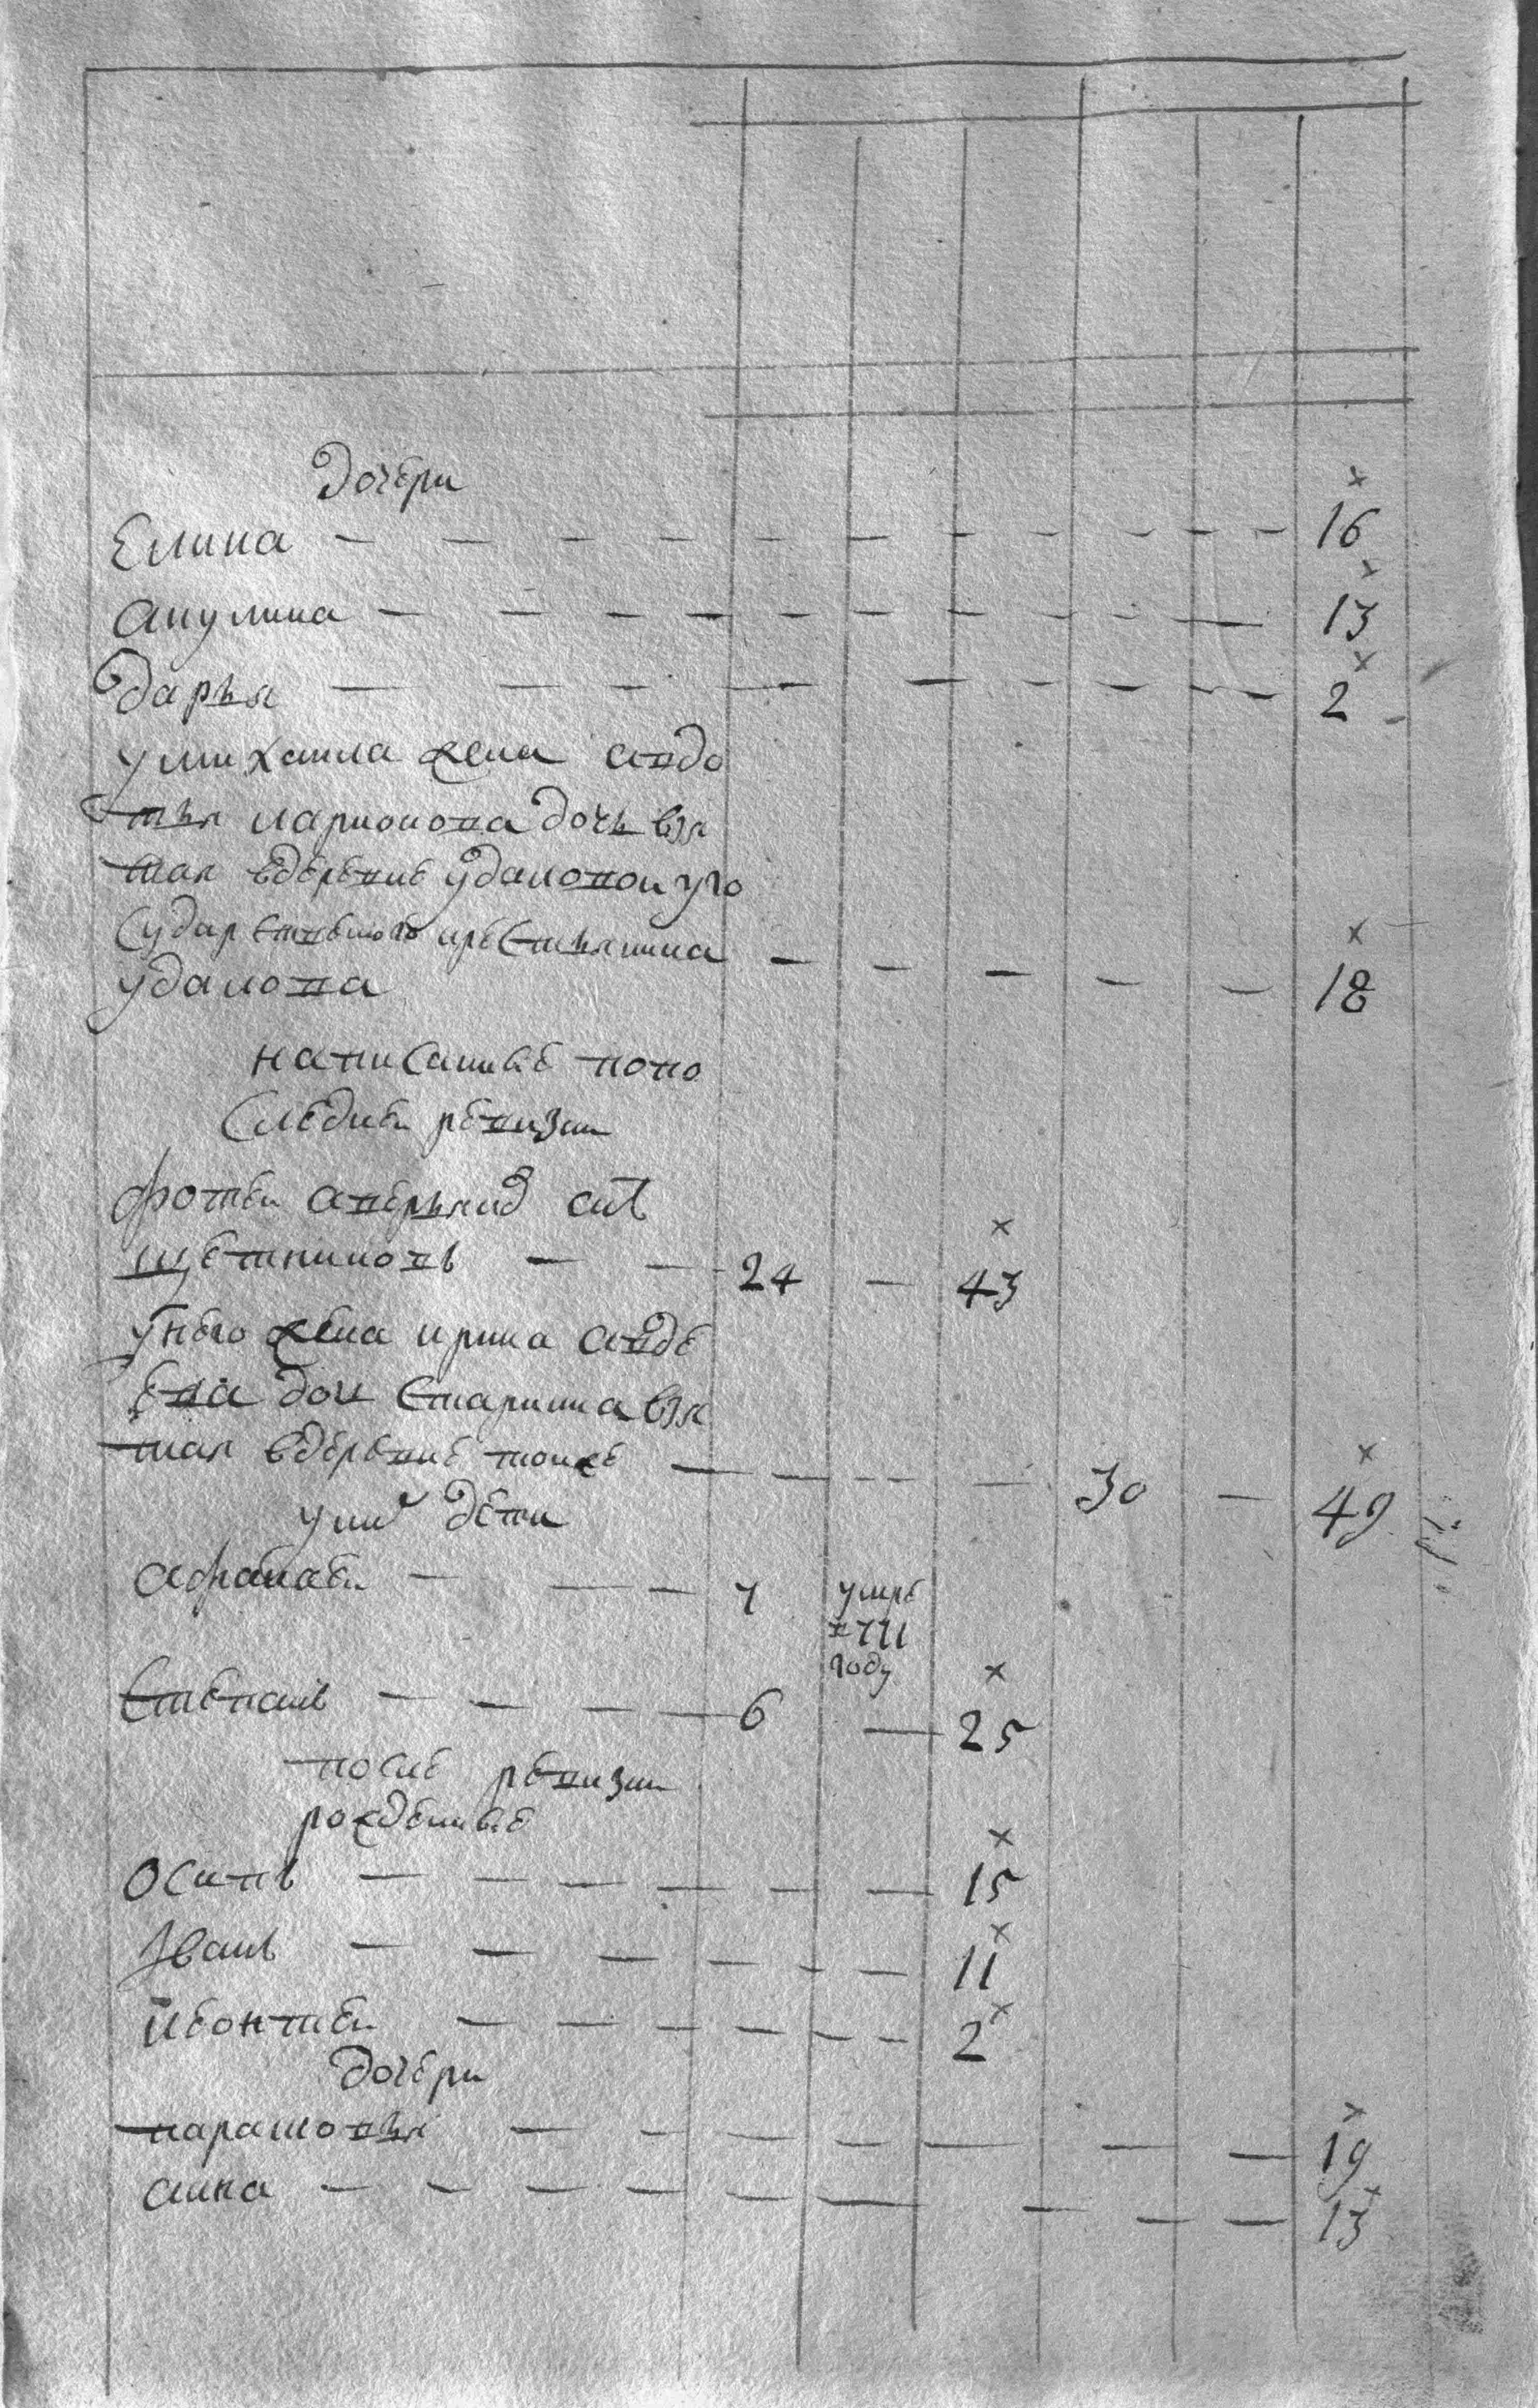 дочери
Елина — — — — — — — — — — 16
акулина — — — — — — — — — 13
дарья — — — — — — — — — 2
у михаила жена авдо
тья ларионова дочь взя
тая вдеревне удаловои уго
сударственого крестьянина — — — — — 18
удалова
написанные попо
следнеи ревизии
фотеи аверьянов снъ
щетниковъ — — 24 — 43
унего жена ирина авде
ева доч старинна взя
тая вдеревне тоиже — — — — 30 — 49
уних дети
афанасеи — — — 7 умре
в 771
году
степанъ — — — — 6 — 25
после ревизии
рожденные
осипъ — — — — — — 15
Iванъ — — — — — — 11
леонтеи — — — — — — 2
дочери
парасковья — — — — — — — 19
анна — — — — — — — — — 13